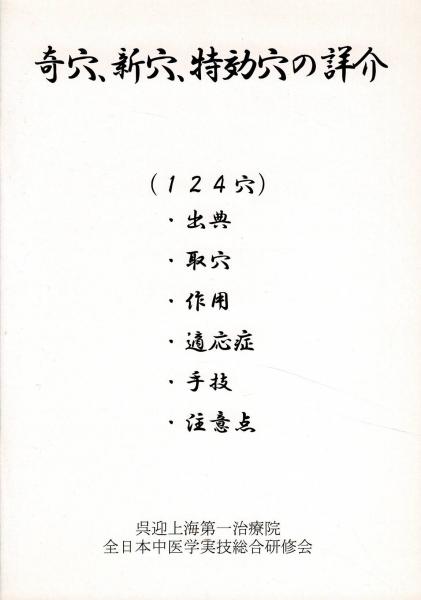 奇穴、新穴、特効穴の詳介
（１２４穴）
・出典
・取穴
・作用
・適応症
・手技
・注意点
呉迎上海第一治療院
全日本中医学実技総合研修会